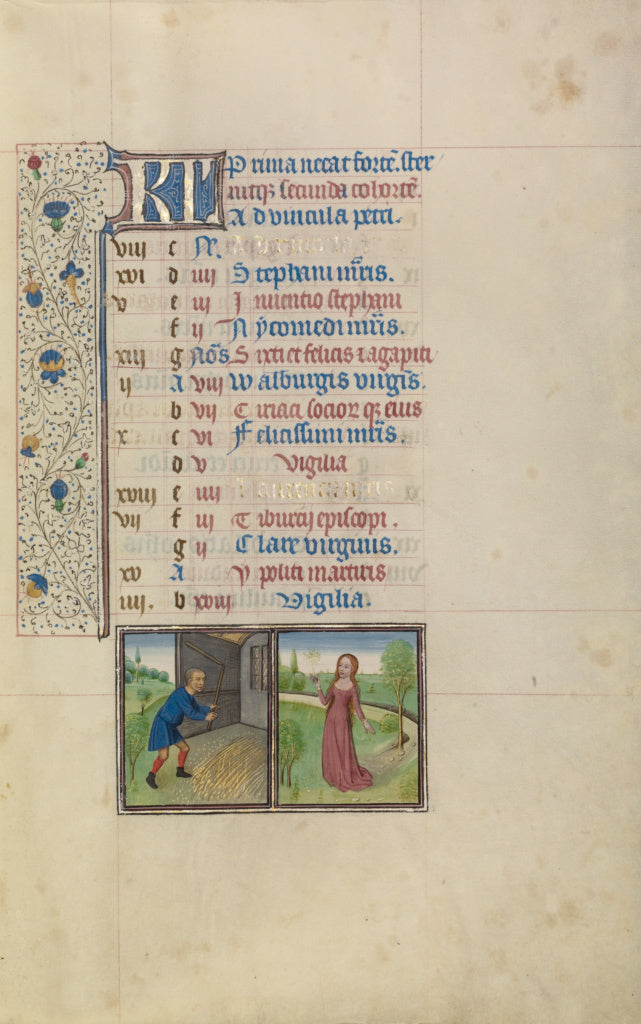 KL Prima necat fortē. ster
nitqȝ secunda cohortē.
Ad vincula petri.
viii c N.
xvi d iiii Stephani mr̄is.
v e iii Inuentio stephani
f ii Nycomedi mr̄is.
xiii g Nōs Sixti et felicis ⁊ agapiti
ii A viii Walburgis virgīs.
b vii Ciriaci socioꝝ qȝ eius
x c vi Felicissimi mr̄is.
d v Vigilia
xviii e iiii
vii f iii Tiburcij episcopi.
g ii Clare virginis.
xv A Ypoliti martiris
iiii. b xviii Vigilia.